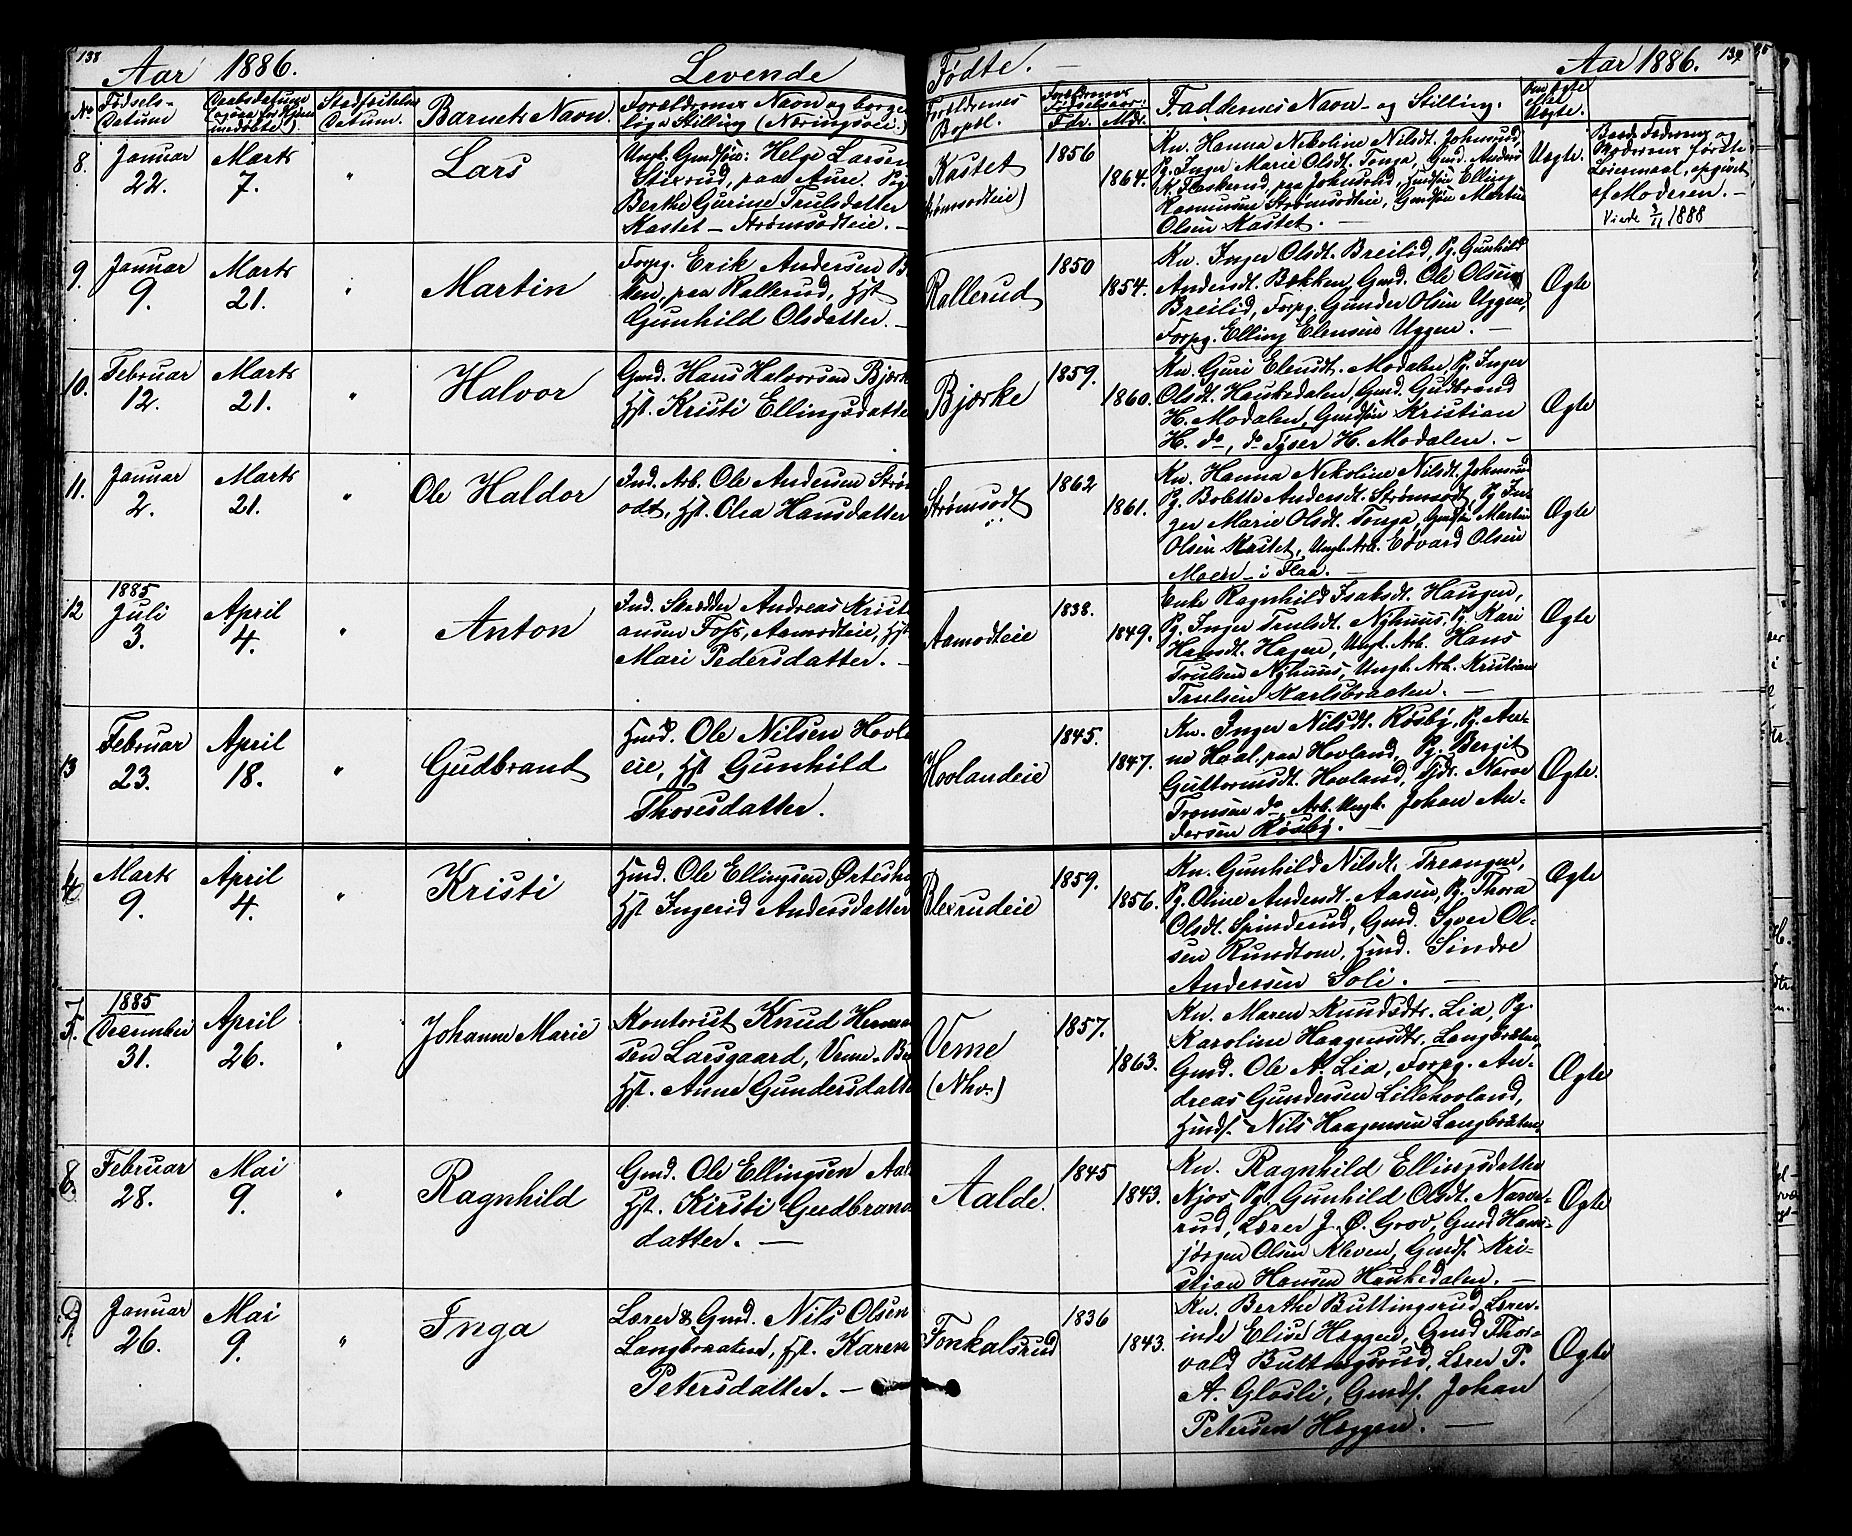 138
Aar 1886.
Levende
Fødte.
Aar 1886.
139
No
Fødsels-
Datum
Daabsdatum
Stadfæstelses
Datum.
Barnets Navn.
Forældrenes Navn og borger-
lige Stilling (Næringsvei.)
Forældrenes
Bopæl.
Forældrenes
Fødselsaar:
Fdr. Mdr.
Faddernes Navn og Stilling.
Om Ægte
eller
Uægte.
8.
Januar
22.
Marts
7.
"
Lars
Ungk. Gmdsøn: Helge Larsen
Stixrud, paa Aure. Pig
Berthe Gurine Trulsdatter
Kastet – Strømsodteie. –
Kastet
Strømsodteie)
1856
1864.
Kn. Hanna Nekoline Nilsdt. Johnsrud,
Pg. Inger Marie Olsdt. Tonga, Gmd. Anders
K. Flaskerud, paa Johnsrud, Husdsøn Elling
Rasmussen Strømsodteie, Gmdsøn Martin
Olsen Kastet. –
Uægte.
Baade Faderens og
Moderens første
Leiermaal, opgivet
af Moderen. –
Viede 2/11 1888
9.
Januar
9.
Marts
21.
"
Martin
Forpg. Erik Andersen B
ken, paa Rallerud, Hst
Gunhild Olsdatter. –
Rallerud
1850
1854.
Kn. Inger Olsdt. Breilid, Pg. Gunhild
Andersdt. Bækken, Gmd. Ole Olsen
Breilid, Forpg. Gunder Olsen Uggen,
Forpg. Elling Elensen Uggen. –
Ægte
10.
Februar
12.
Marts
21.
"
Halvor
Gmd. Hans Halvorsen Bjørke
Hst. Kristi Ellingsdatte
Bjørke
1859.
1860.
Kn. Guri Elensdt. Modalen, Pg. Inger
Olsdt. Haukedalen, Gmd. Gudbrand
H. Modalen, Gmdsøn Kristian
H. do, do Syver H. Modalen. –
Ægte
11.
Januar
2.
Marts
21.
"
Ole Haldor
Ind. Arb. Ole Andersen Strøm
odt, Hst. Olea Hansdatter
Strømsodt
1862
1861.
Kn. Hanna Nekoline Nilsdt. Johnsrud
Pg. Bolette Andersdt. Strømsodt, Pg. In-
ger Marie Olsdt. Tonga, Gmdsøn Martin
Olsen Kastet, Ungk. Arb. Edvard Olsen
Moen – i Flaa. –
Ægte
12
1885
Juli
3.
April
4.
"
Anton
Ind. Skrædder Andreas Krist
ansen Foss, Aamodteie, Hst
Mari Pedersdatter. –
Aamodteie
1838.
1849.
Enke Ragnhild Isaksdt. Haugen,
Pg. Inger Trulsdt. Nyhuus, Pg. Kari
Hansdt. Hagen, Ungk. Arb. Hans
Trulsen Nyhuus, Ungk. Arb. Kristian
Trulsen Karlsbraaten. –
Ægte
13
Februar
23.
April
18.
"
Gudbrand
Husd. Ole Nilsen Hovl
eie, Hst Gunhild
Thoresdatter.
Hovlandeie
1845.
1847.
Kn. Inger Nilsdt. Røsby, Pg. An-
ne Hval, paa Hovland, Pg. Bergit
Guttormsdt. Hovland, Tjdr. Narve
Tronsen do, Arb. Ungk. Johan An-
dersen Røsby. –
Ægte.
Marts
9.
April
4.
"
Kristi
Husd. Ole Ellingsen
Hst Ingerid Andersdatter
Blexrudeie
1859.
1856.
Kn. Gunhild Nilsdt. Treanger,
Pg. Oline Andersdt. Aasen, Pg. Thora
Olsdt. Spinderud, Gmd. Syver Ol-
sen Rundtom, Husd. Sindre
Andersen Soli. –
Ægte
5.
1885
December
31.
April
26.
"
Johanne Marie
Kontorist Knud Herman
sen Larsgaard, Veme-
Hst. Anne Gundersdatte
Veme
(Nhv.)
1857.
1863.
Kn. Maren Knudsdtr. Lia, Pg.
Karoline Haagensdtr. Langbraten,
Gmd. Ole A. Lia, Forpg. An-
dreas Gundersen Lillehovland,
Husds. Nils Haagensen Langbraten
Ægte
6.
Februar
28.
Mai
9.
"
Ragnhild
Gmd. Ole Ellingsen Aal
Hst. Kirsti Gudbrands
datter. –
Aalde.
1845
1843.
Kn. Ragnhild Ellingsdatter
Njos, Pg. Gunhild Olsdt. Narve-
rud, Lærer J. Ø. Grov, Gmd Hans
Jørgen Olsen Kleven, Gmds. Kri-
stian Hansen Haukedalen. –
Ægte
Januar
26.
Mai
9.
"
Inga
Lærer & Gmd. Nils Olsen
Langbraaten, Hst. Karen
Petersdatter. –
Fonkalsrud
1836
1843.
Kn. Berthe Buttingsrud, Lærer-
inde Elise Hæggen, Gmd Thor-
vald Buttingsrud, Lærer P.
A. Glosli, Gmds. Johan
Petersen Hæggen. –
Ægte